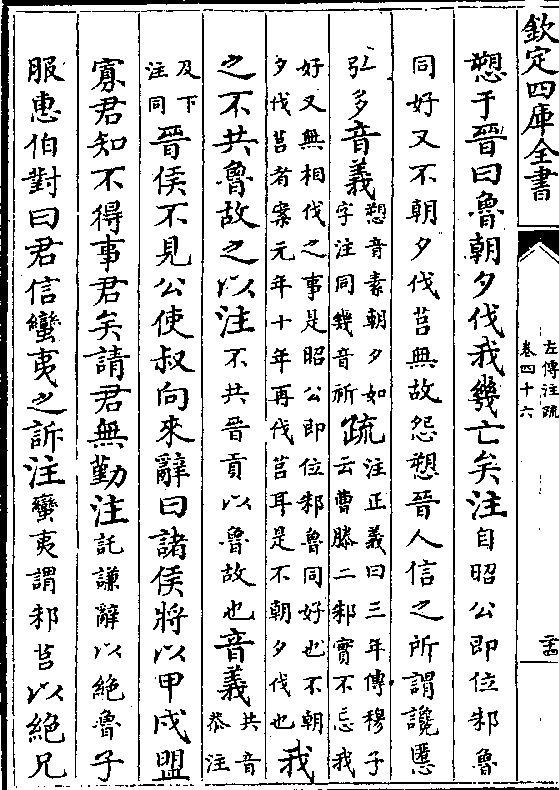 欽定四庫全書
左傳注疏
卷四十六
二十四
愬于晉曰魯朝夕伐我幾亡矣注自昭公即位邾魯
同好又不朝夕伐莒無故怨愬晉人信之所謂讒慝
弘多音義愬音素朝夕如
字注同幾音祈疏注正義曰三年傳穆子
云曹滕二邾實不忘我
好又無相伐之事是昭公即位邾魯同好也不朝
夕伐莒者案元年十年再伐莒耳是不朝夕伐也我
之不共魯故之以注不共晉貢以魯故也音義共音
恭注
及下
注同晉侯不見公使叔向來辭曰諸侯將以甲戌盟
寡君知不得事君矣請君無勤注託謙辭以絶魯子
服惠伯對曰君信蠻夷之訴注蠻夷謂邾莒以絶兄